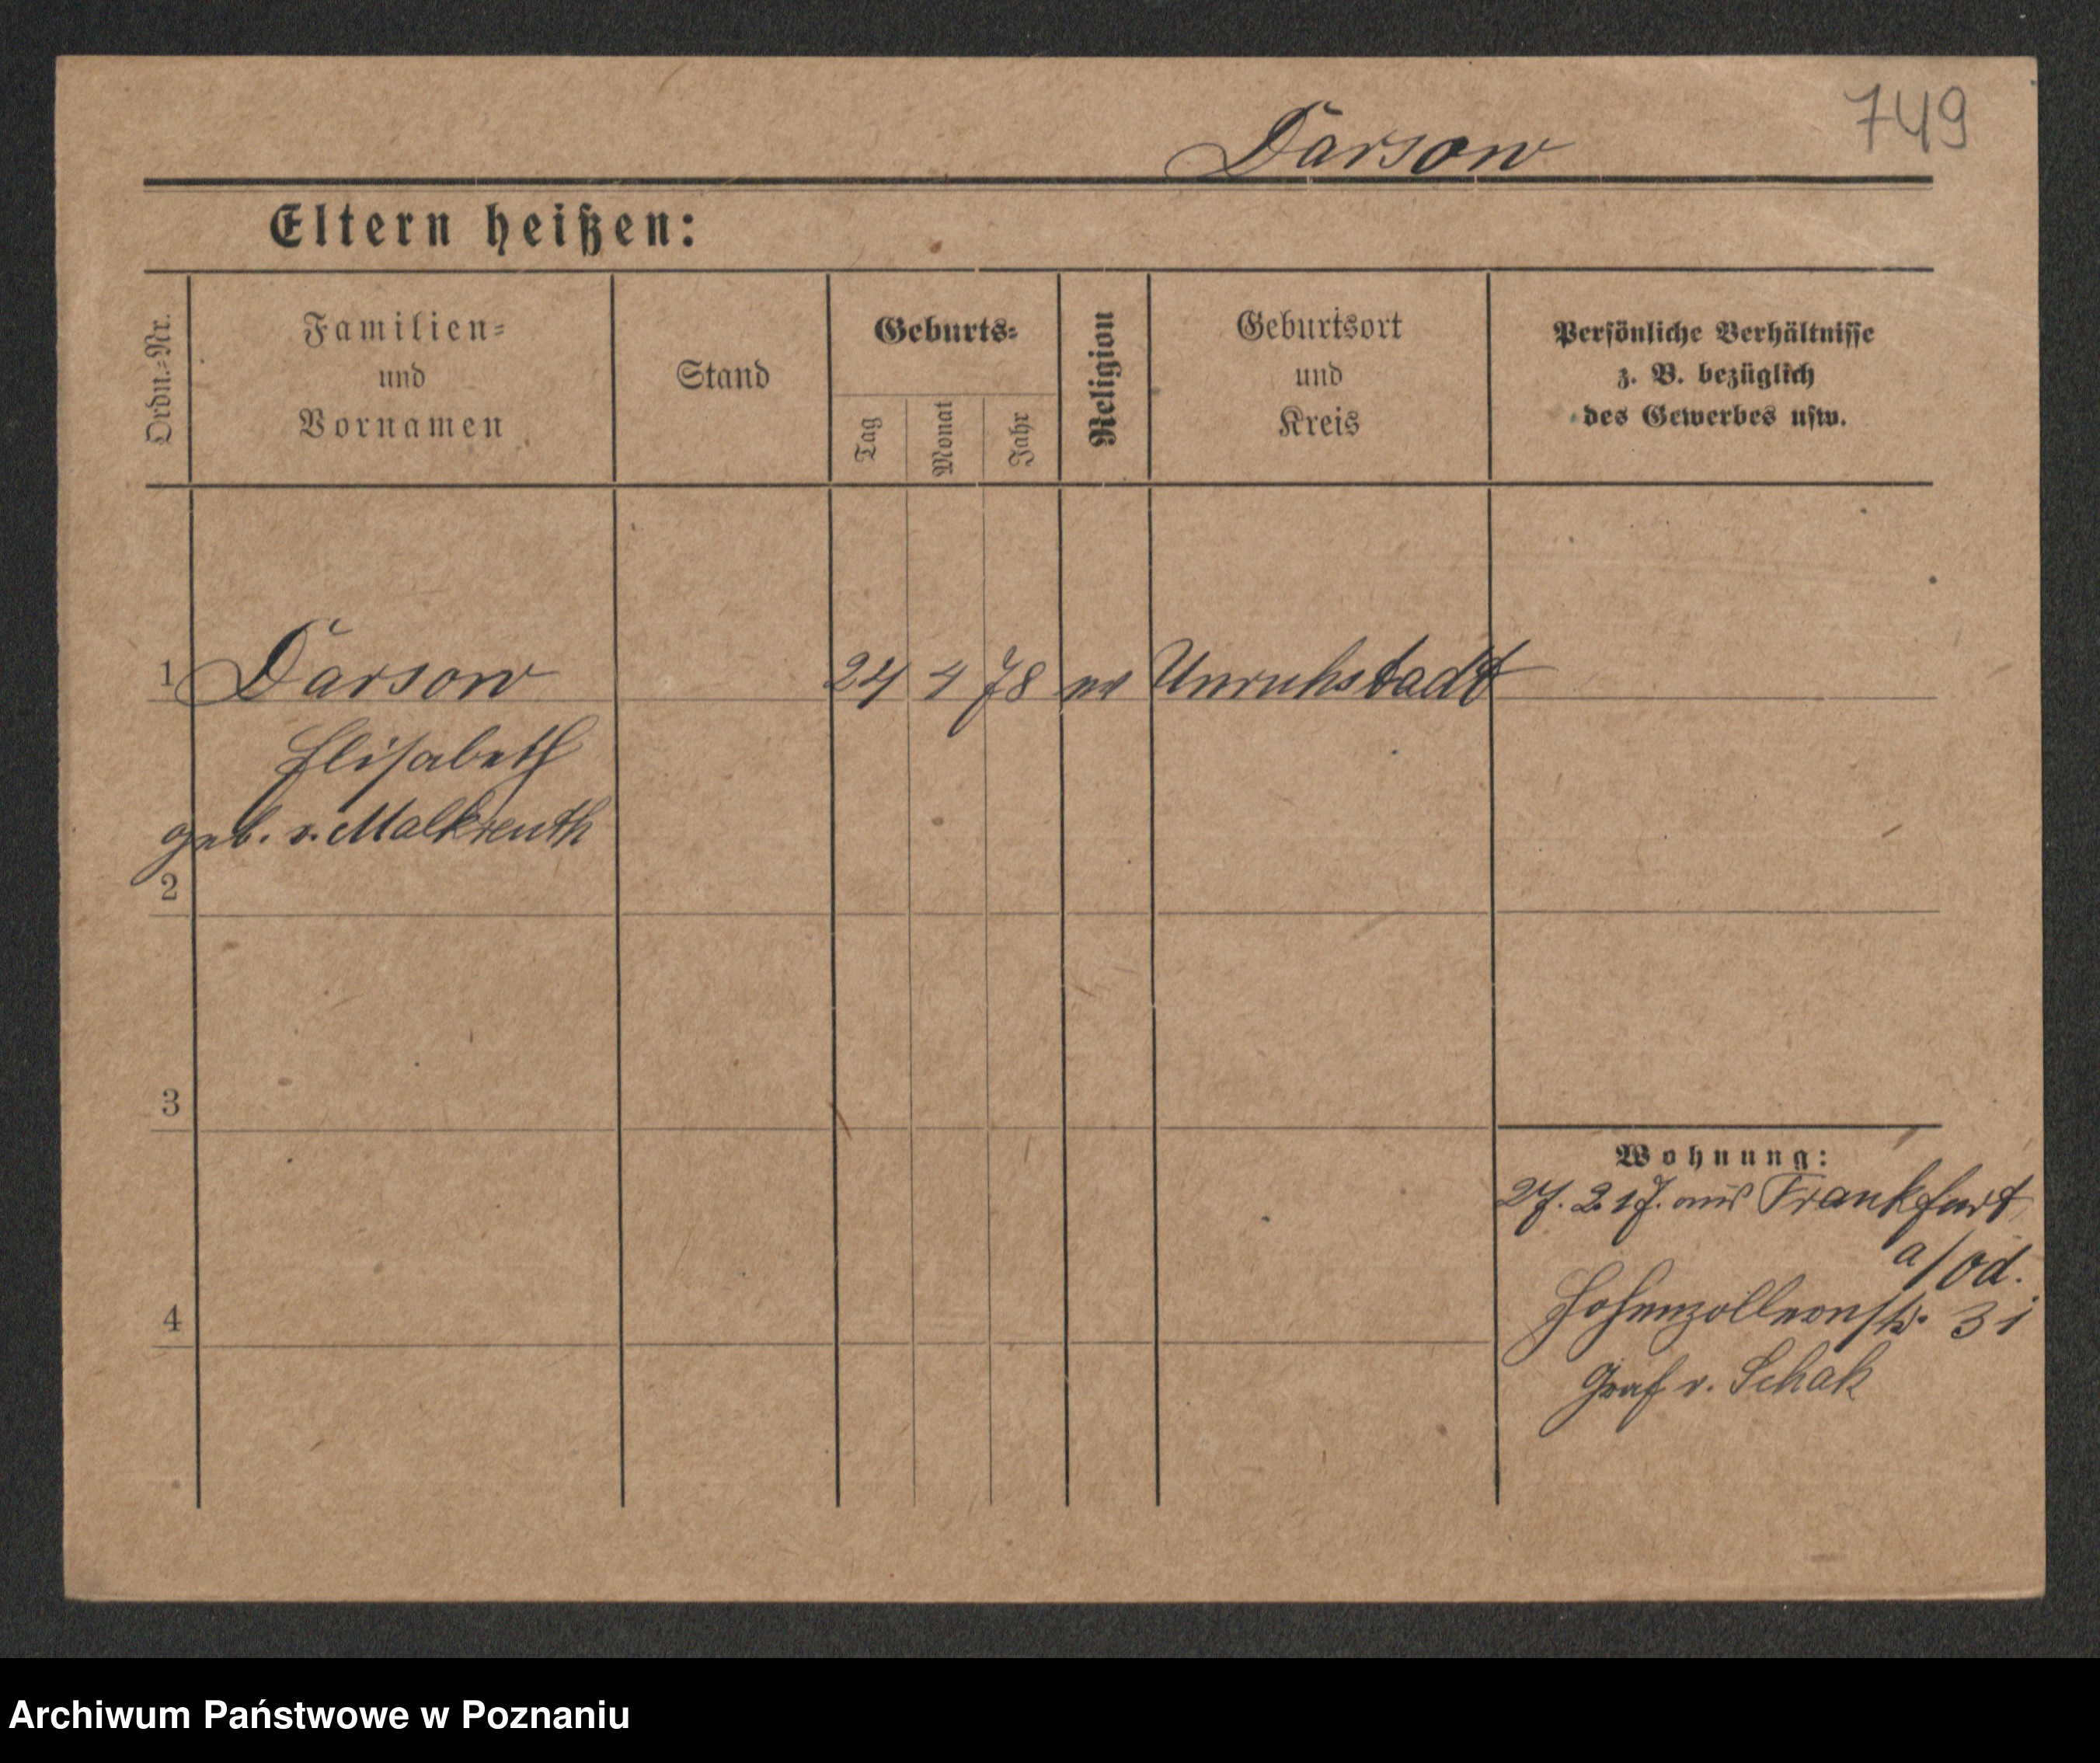 749
Darsow
Eltern heißen:
Ordn.-Nr.
Familien-
und
Vornamen
Stand
Geburts-
Tag
Monat
Jahr
Religion
Geburtsort
und
Kreis
Persönliche Verhältnisse
z. B. bezüglich
des Gewerbes usw.
1 Darsow 24 4 78 ev Unruhstadt
Elisabeth
geb. v. Malkreuth
2
3
4
Wohnung:
27. 2. 17. aus Frankfurt
a/Od.
Hohenzollernstr. 31
Graf v. Schak
Archiwum Państwowe w Poznaniu